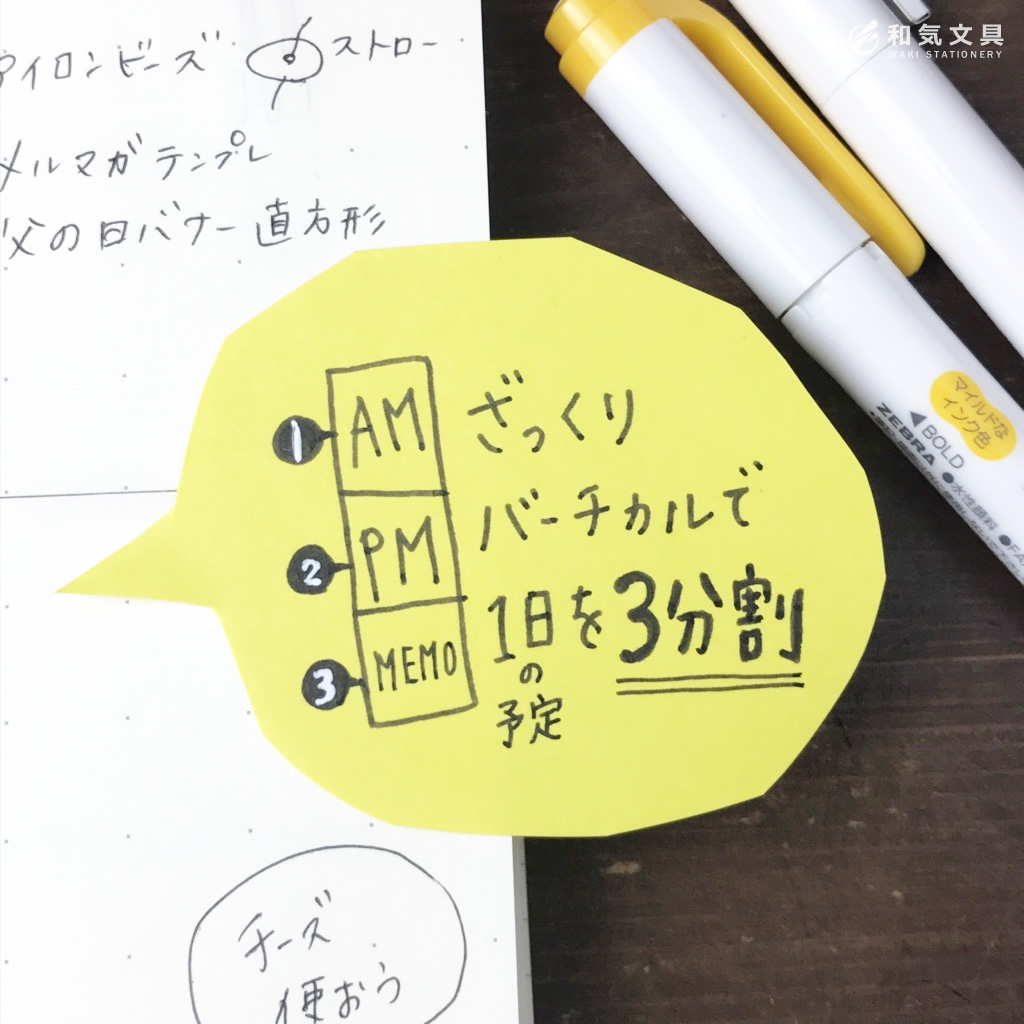 和気文具
WAKI STATIONERY
アイロンビーズ ストロー
メルマガテンプレ
父の日バナー 直方形
1 AM
2 PM
3 MEMO
ざっくり
バーチカルで
1日を3分割
の
予定
マイルドな
インク色
◀BOLD
ZEBRA
●水性顔料
チーズ
使おう